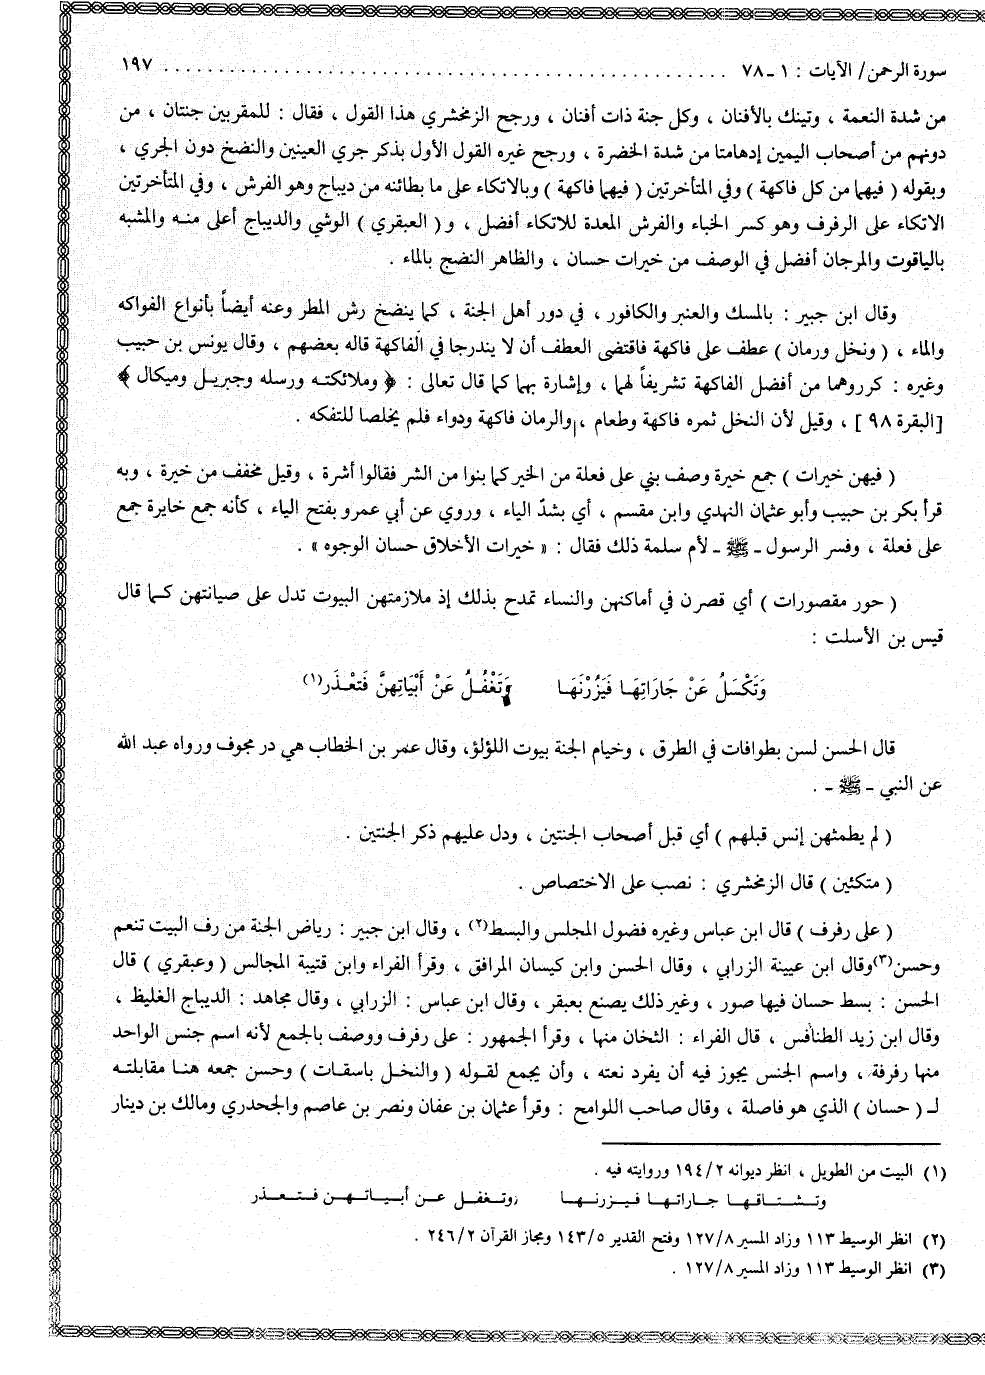 سورة الرحمن/ الآيات : ١ ـ ٧٨ ........................................................ ١٩٧
من شدة النعمة ، وتينك بالأفنان ، وكل جنة ذات أفنان ، ورجح الزمخشري هذا القول ، فقال : للمقربين جنتان ، من
دونهم من أصحاب اليمين إدهامتا من شدة الخضرة ، ورجح غيره القول الأول بذكر جري العينين والنضخ دون الجري ،
وبقوله ( فيهما من كل فاكهة ) وفي المتأخرتين ( فيهما فاكهة ) وبالاتكاء على ما بطائنه من ديباج وهو الفرش ، وفي المتأخرتين
الاتكاء على الرفرف وهو كسر الخباء والفرش المعدة للاتكاء أفضل ، و ( العبقري ) الوشي والديباج أعلى منه والمشبه
بالياقوت والمرجان أفضل في الوصف من خيرات حسان ، والظاهر النضج بالماء .
وقال ابن جبير : بالمسك والعنبر والكافور ، في دور أهل الجنة ، كما ينضخ رش المطر وعنه أيضاً بأنواع الفواكه
والماء ، ( ونخل ورمان ) عطف على فاكهة فاقتضى العطف أن لا يندرجا في الفاكهة قاله بعضهم ، وقال يونس بن حبيب
وغيره : كررهما من أفضل الفاكهة تشريفاً لهما ، وإشارة بهما كما قال تعالى : ﴿ وملائكته ورسله وجبريل وميكال ﴾
[البقرة ٩٨ ] ، وقيل لأن النخل ثمره فاكهة وطعام ، والرمان فاكهة ودواء فلم يخلصا للتفكه .
( فيهن خيرات ) جمع خيرة وصف بني على فعلة من الخير كما بنوا من الشر فقالوا أشرة ، وقيل مخفف من خيرة ، وبه
قرأ بكر بن حبيب وأبو عثمان النهدي وابن مقسم ، أي بشدّ الياء ، وروي عن أبي عمرو بفتح الياء ، كأنه جمع خايرة جمع
على فعلة ، وفسر الرسول ـ ﷺ ـ لأم سلمة ذلك فقال : « خيرات الأخلاق حسان الوجوه » .
( حور مقصورات ) أي قصرن في أماكنهن والنساء تمدح بذلك إذ ملازمتهن البيوت تدل على صيانتهن كما قال
قيس بن الأسلت :
وَتَكْسَلُ عَنْ جَارَاتِهَا فَيَزُرْنَهَا وَتَغْفُلُ عَنْ أَبْيَاتِهِنَّ فَتَعْذَر(١)
قال الحسن لسن بطوافات في الطرق ، وخيام الجنة بيوت اللؤلؤ، وقال عمر بن الخطاب هي در مجوف ورواه عبد الله
عن النبي ـ ﷺ ـ .
( لم يطمثهن إنس قبلهم ) أي قبل أصحاب الجنتين ، ودل عليهم ذكر الجنتين .
( متكئين ) قال الزمخشري : نصب على الاختصاص .
( على رفرف ) قال ابن عباس وغيره فضول المجلس والبسط(٢) ، وقال ابن جبير : رياض الجنة من رف البيت تنعم
وحسن(٣)وقال ابن عيينة الزرابي ، وقال الحسن وابن كيسان المرافق ، وقرأ الفراء وابن قتيبة المجالس ( وعبقري ) قال
الحسن : بسط حسان فيها صور ، وغير ذلك يصنع بعبقر ، وقال ابن عباس : الزرابي ، وقال مجاهد : الديباج الغليظ ،
وقال ابن زيد الطنافس ، قال الفراء : الثخان منها ، وقرأ الجمهور : على رفرف ووصف بالجمع لأنه اسم جنس الواحد
منها رفرفة ، واسم الجنس يجوز فيه أن يفرد نعته ، وأن يجمع لقوله ( والنخل باسقات ) وحسن جمعه هنا مقابلته
لـ ( حسان ) الذي هو فاصلة ، وقال صاحب اللوامح : وقرأ عثمان بن عفان ونصر بن عاصم والجحدري ومالك بن دينار
(١) البيت من الطويل ، انظر ديوانه ١٩٤/٢ وروايته فيه .
وتشتاقها جاراتها فيزرنها وتغفل عن أبياتهن فتعذر
(٢) انظر الوسيط ١١٣ وزاد المسير ١٢٧/٨ وفتح القدير ١٤٣/٥ ومجاز القرآن ٢٤٦/٢ .
(٣) انظر الوسيط ١١٣ وزاد المسير ١٢٧/٨ .